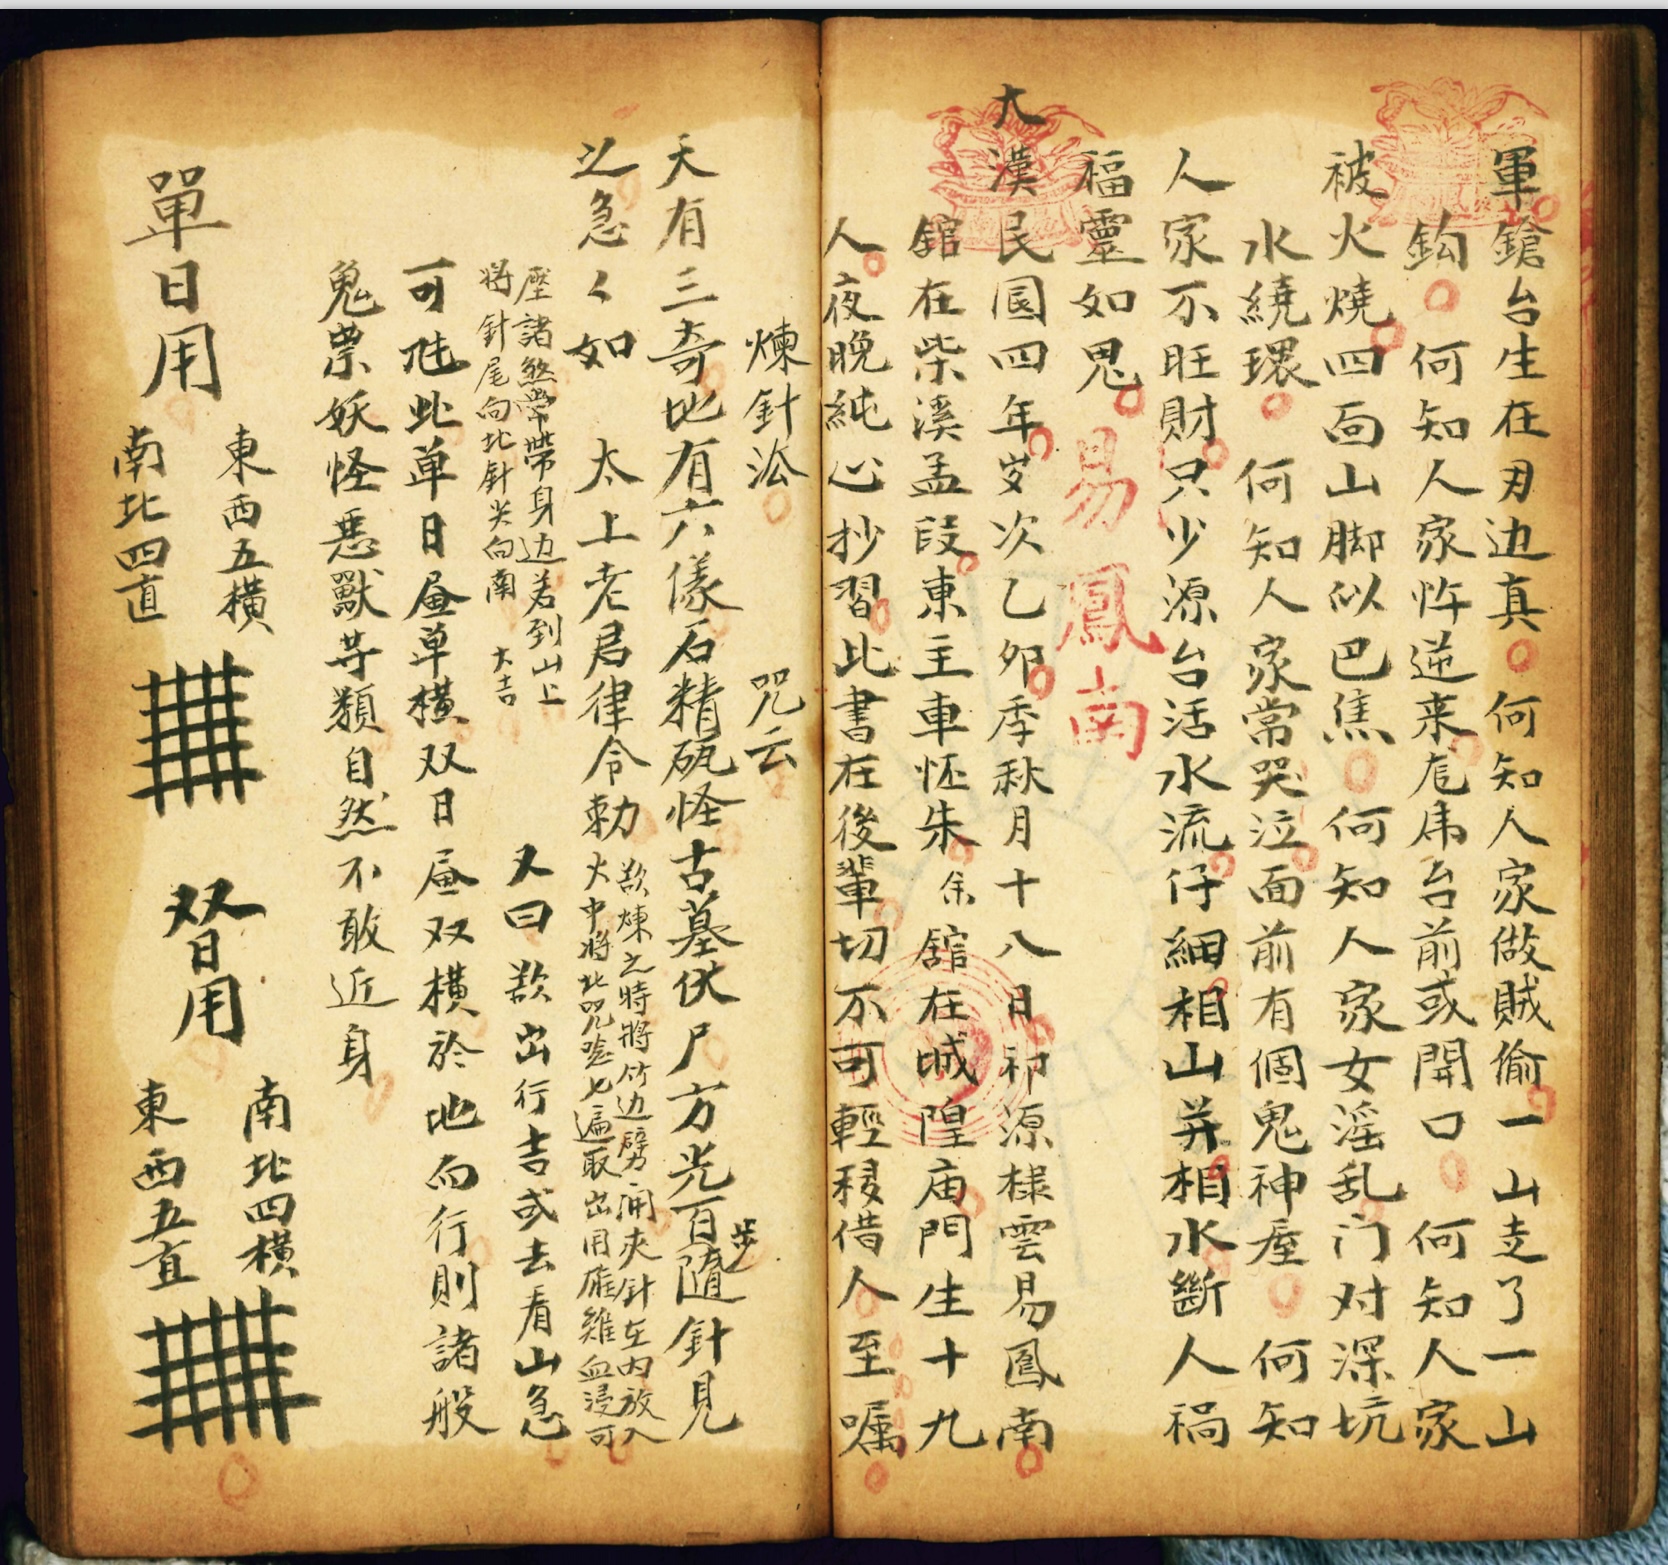 軍鎗台生在刃边真 何知人家做賊偷一山走了一山
鈎 何知人家忤逆来 台前或開口 何知人家
被火燒四面山脚似巴焦 何知人家女淫乱门对深坑
水繞環 何知人家常哭泣面前有個鬼神屋 何知
人家不旺財只少源台活水流仔細相山并相水斷人禍
福靈如思
易鳳南
大漢民国四年岁次乙卯季秋月十八日祁源樣雲易鳳南
舘在柴溪孟段東主車怌朱余舘在城隍庙門生十九
人夜晚純心抄習此書在後輩切不可輕移借人至嘱
煉針法 咒云
天有三奇地有六儀石精 怪古墓伏尸方光百步随针見
之急々如 太上老君律令勅
欲煉之時將竹边劈開夾針在内放入
火中將此咒唸七遍取出用雄雞血浸可
壓諸煞帶身边若到山上
將針尾向北針尖向南 大吉
又曰欲出行吉或去看山急
可 此单日畫单横双日畫双横於地向行則諸般
鬼祟妖怪惡獸等類自然不敢近身
單日用
東西五橫
南北四直
双日用
南北四橫
東西五直